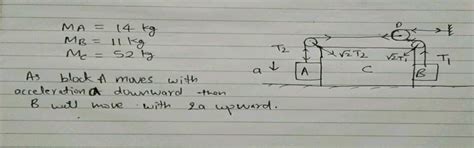 MA = 14 kg
MB = 11 kg
MC = 52 kg
As block A moves with
acceleration a downward then
B will move with 2a upward.
P
T2
√2T2
√2T1
T1
a
A
C
B